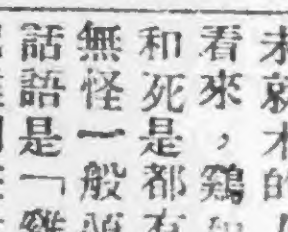 未就木的
看來，鷄
和死是都有
無怪一般
話語是「雞